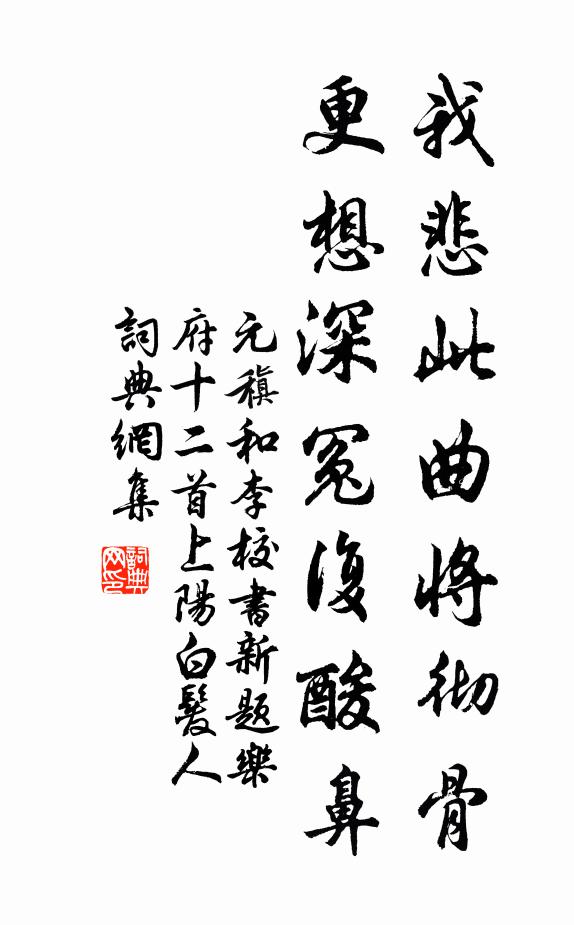 我悲此曲將彻骨
更想深冤復酸鼻
元稹和李校書新题樂
府十二首上陽白髮人
詞典網集
詞典网印